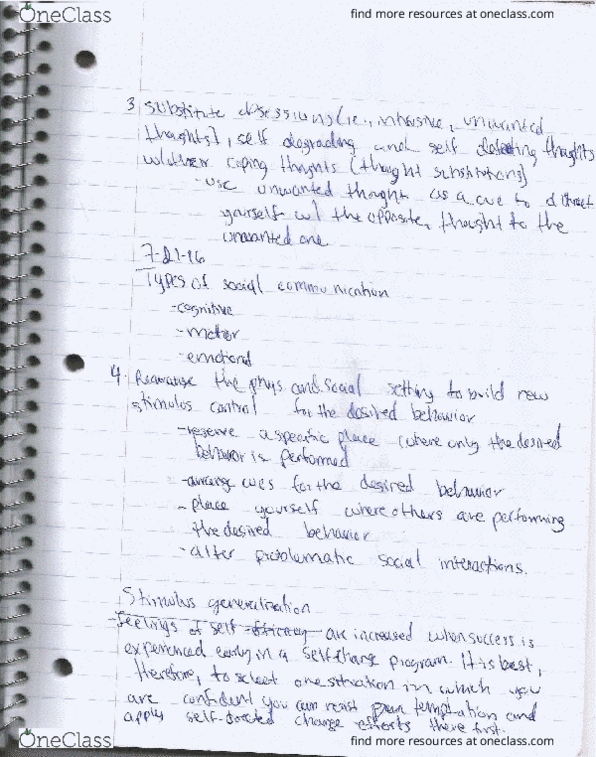 OneClass
find more resources at oneclass.com
3 substitute obsessions (i.e., intrusive, unwanted
thoughts), self degrading and self defeating thoughts
w/ other coping thoughts (thought substitutions)
- use unwanted thought as a cue to distract
yourself w/ the opposite, thought to the
unwanted one
7-21-16
Types of social communication
- cognitive
- motor
- emotional
4. Rearrange the phys and social setting to build new
stimulus control for the desired behavior
- reserve a specific place (where only the desired
behavior is performed
- arrange cues for the desired behavior
- place yourself where others are performing
the desired behavior
- alter problematic social interactions.
Stimulus generalization
- Feelings of self-efficacy are increased when success is
experienced early in a self change program. It is best,
therefore, to select one situation in which you
are confident you can resist temptation and
apply self-directed change efforts there first.
OneClass
find more resources at oneclass.com